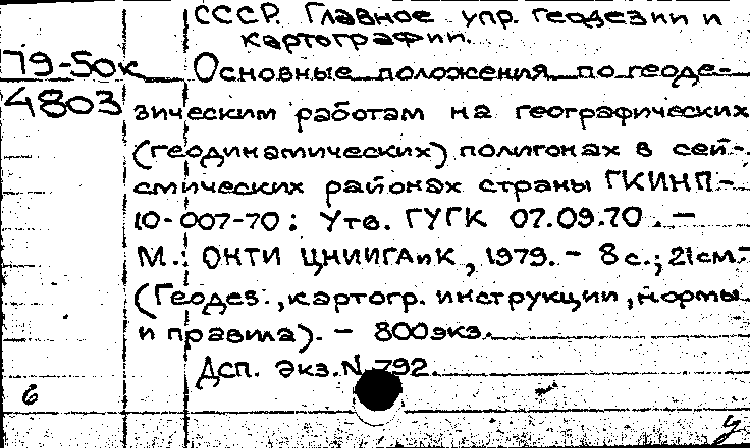 СССР. Главное упр. геодезии и
картографии.
79-50к Основные положения по геоде-
4803 зическим работам на географических
(геодинамических) полигонах в сей-
смических районах страны ГКИНП-
10-007-70: Утв. ГУГК 07.09.70. –
М.: ОНТИ ЦНИИГАиК, 1979. – 8 с.; 21см.
(Геодез., картогр. инструкции, нормы
и правила). – 800экз.
Дсп. Экз.N 792.
6